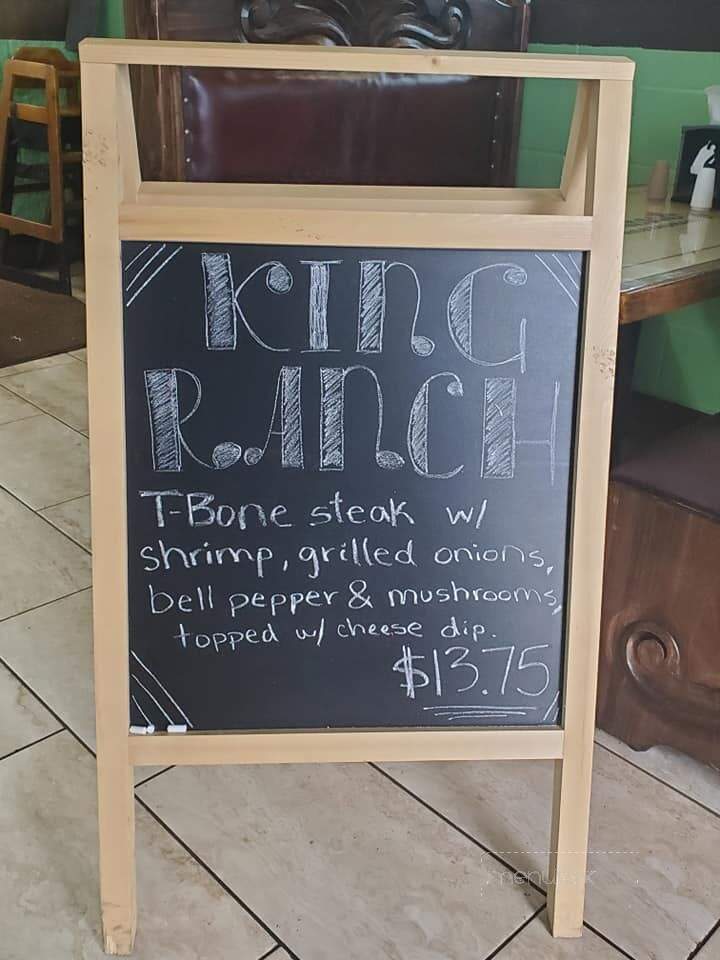 KING
RANCH
T-Bone steak w/
shrimp, grilled onions,
bell pepper & mushrooms,
topped w/ cheese dip.
$13.75